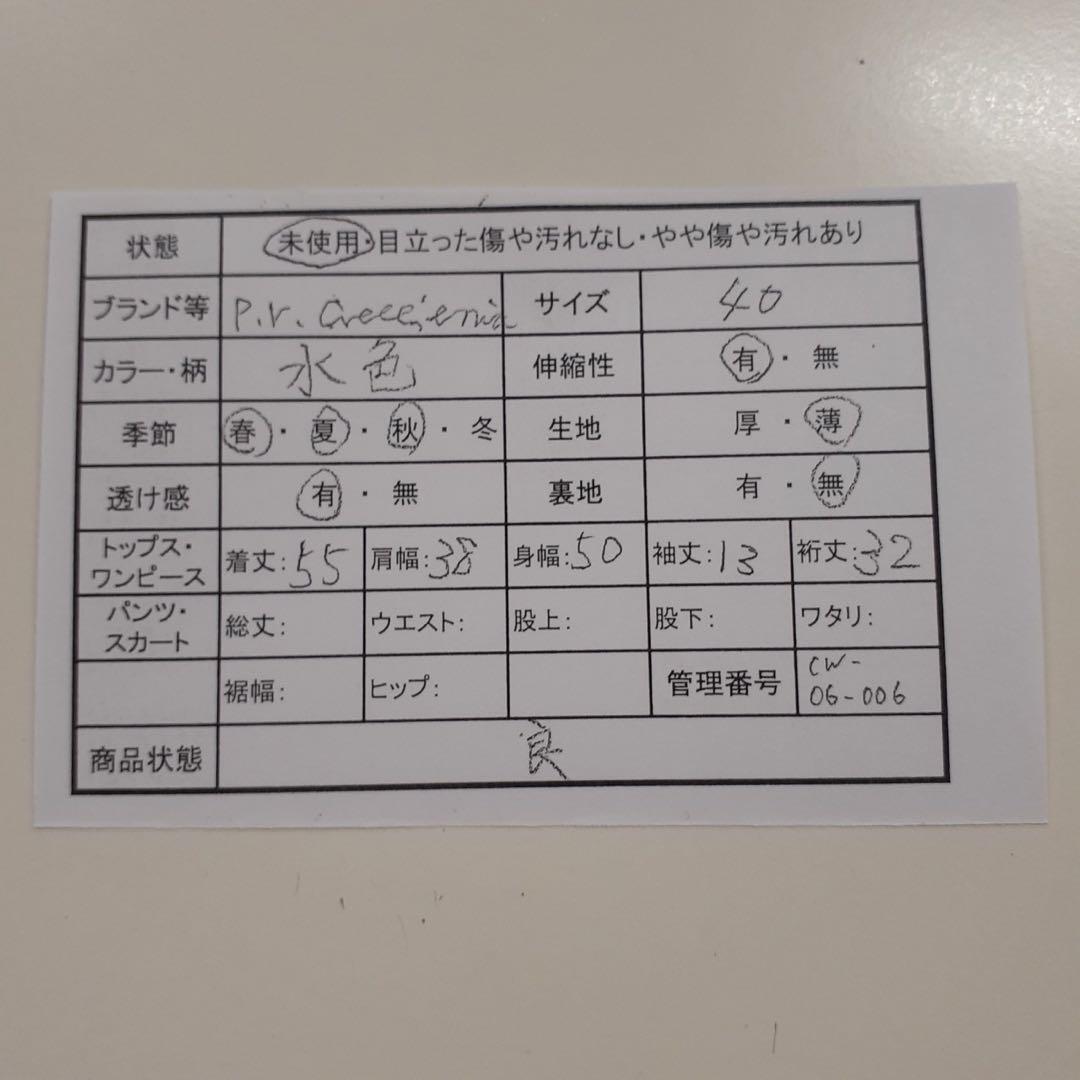 状態 未使用・目立った傷や汚れなし・やや傷や汚れあり
ブランド等 P.V. サイズ 40
カラー・柄 水色 伸縮性 有・無
季節 春・夏・秋・冬 生地 厚・薄
透け感 有・無 裏地 有・無
トップス・
ワンピース 着丈:55 肩幅:38 身幅:50 袖丈:13 裄丈:32
パンツ・
スカート 総丈: ウエスト: 股上: 股下: ワタリ:
裾幅: ヒップ: 管理番号 CW-
06-006
商品状態 良